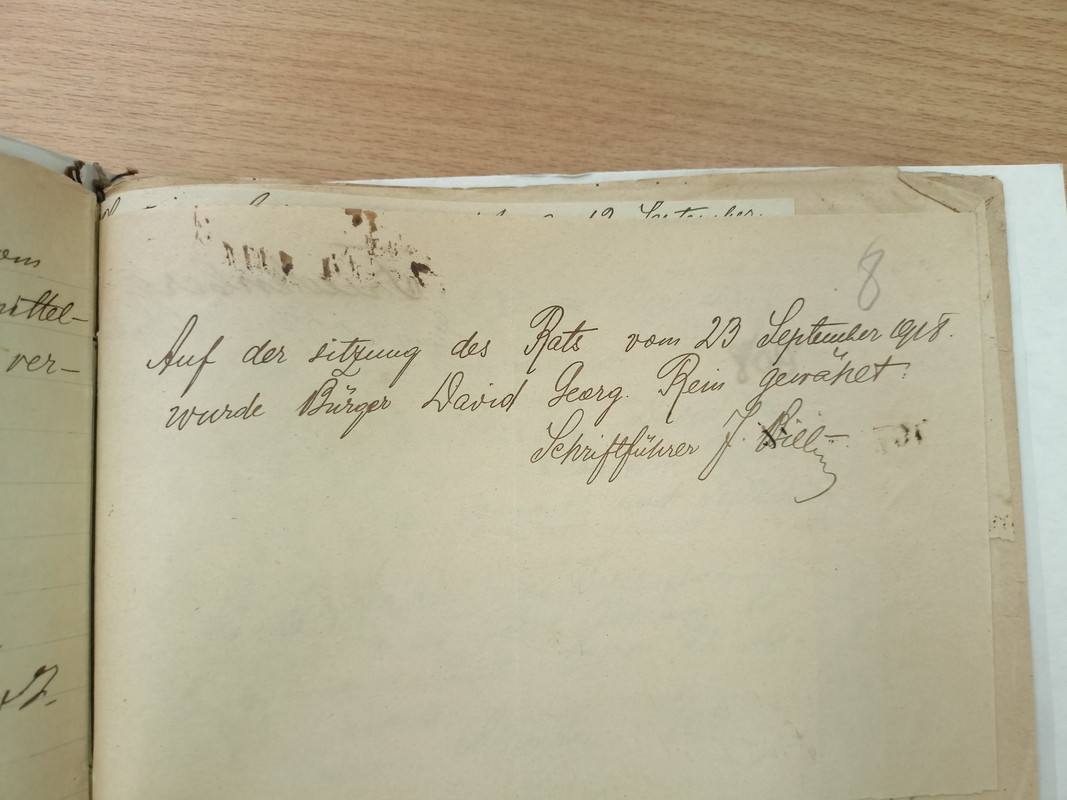 om
mittel-
ver-
12 September
8
Auf der sitzung des Rats vom 23 September 1918.
wurde Bürger David Georg. Rein gewählet:
Schriftführer J.